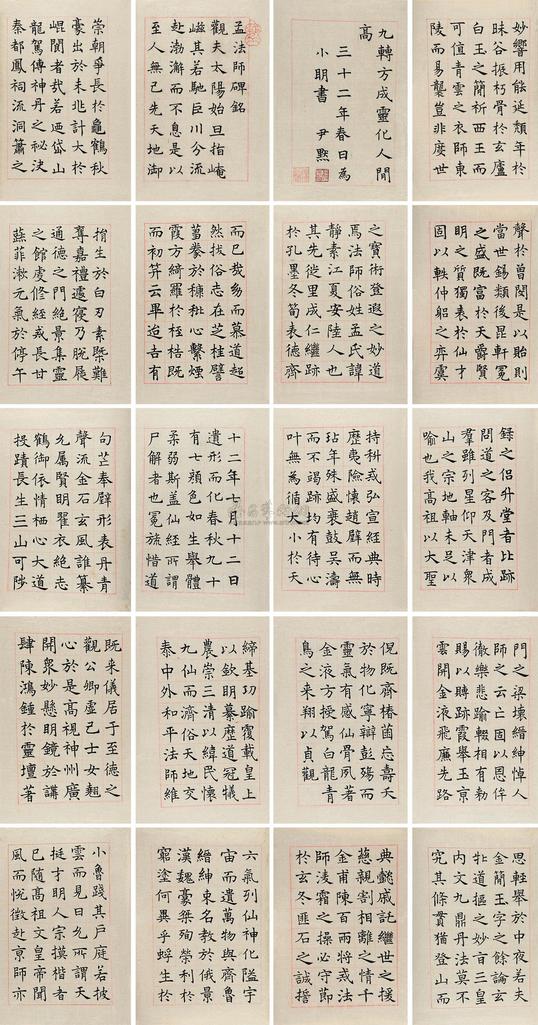 妙響用能延頹年於
昧谷振朽骨於玄廬
白玉之簡祈西王而
可值青雲之衣師東
陵而易襲豈非度世
九轉方成靈化人間
高
三十二年春日為
小明書 尹默
孟法師碑銘
觀夫太陽始旦指崦
嵫其若馳巨川分流
赴渤澥而不息是以
至人無己先天地御
崇朝爭長於龜鶴秋
豪出於未兆計大於
崐閬者哉若迺岱山
龍駕傳神丹之秘訣
秦都鳳祠流洞簫之
聲於曾閔是以貽則
當世錫類後昆軒冕
之盛既富於天爵賢
明之質獨表於仙才
固以軼仲躬之弈虞
之寶術登遐之妙道
焉法師俗姓孟氏諱
靜素江夏安陸人也
其先徙里成仁繼跡
於孔墨冬筍表德齊
而已哉多而慕道超
然拔俗志在芝桂譬
蒭豢於糠秕心繫煙
霞方綺羅於桎梏既
而初笄云畢迨吉有
捐生於白刃素槩難
奪嘉禮遽寢乃脫屣
通德之門絕景集靈
之館虔修經戒長甘
蔬菲漱元氣於停午
錄之侶升堂者比跡
問道之客及門者成
羣雖列星仰天津衆
山之宗地軸未足以
喻也我高祖以大聖
持科戒弘宣經典時
歷夷險懷趙璧而無
玷年殊盛衰鼓吳濤
而不竭跡均有待心
叶無為循大小於天
十二年七月十二日
遺形而化春秋九十
有七顏色如生舉體
柔弱斯蓋仙經所謂
尸解者也冕旒惜道
句芒奉璧形表丹青
聲流金石玄風誰纂
允屬賢明翟衣絶志
鶴御依情栖心大道
投蹟長生三山可陟
門之梁壞縉紳悼人
師之云亡固以恩侔
徹樂悲踰輟相有勅
賜以時跡霞舉玉京
雲開金液飛廉先路
俔既齊椿菌忘壽夭
於物化寧辯彭殤而
靈氣有感仙骨夙著
金液方授駕白龍青
鳥之来翔以貞觀
締基功踰覆載皇上
以欽明纂歷道冠犧
農崇三清以緯民懷
九仙而濟俗天地交
泰中外和平法師維
既来儀居于至德之
觀公卿虛己士女翹
心於是高視神州廣
開衆妙懸明鏡於講
肆陳鴻鍾於靈壇著
思輕舉於中夜若夫
金簡玉字之餘論玄
牝道樞之妙旨三皇
内文九鼎丹法莫不
究其條貫猶登山而
典懿戚託繼世之援
慈親割相離之情千
金甫陳百兩將戒法
師淩霜之操必守節
於玄冬匪石之誠誓
六氣列仙神化隘宇
宙而遺萬物與齊魯
縉紳束名教於俄景
漢魏豪桀殉榮利於
窮塗何異乎蜉生於
小魯踐其戶庭若披
雲而見日允所謂天
挺才明人宗摸楷者
已隨高祖文皇帝聞
風而悅徵赴京師亦